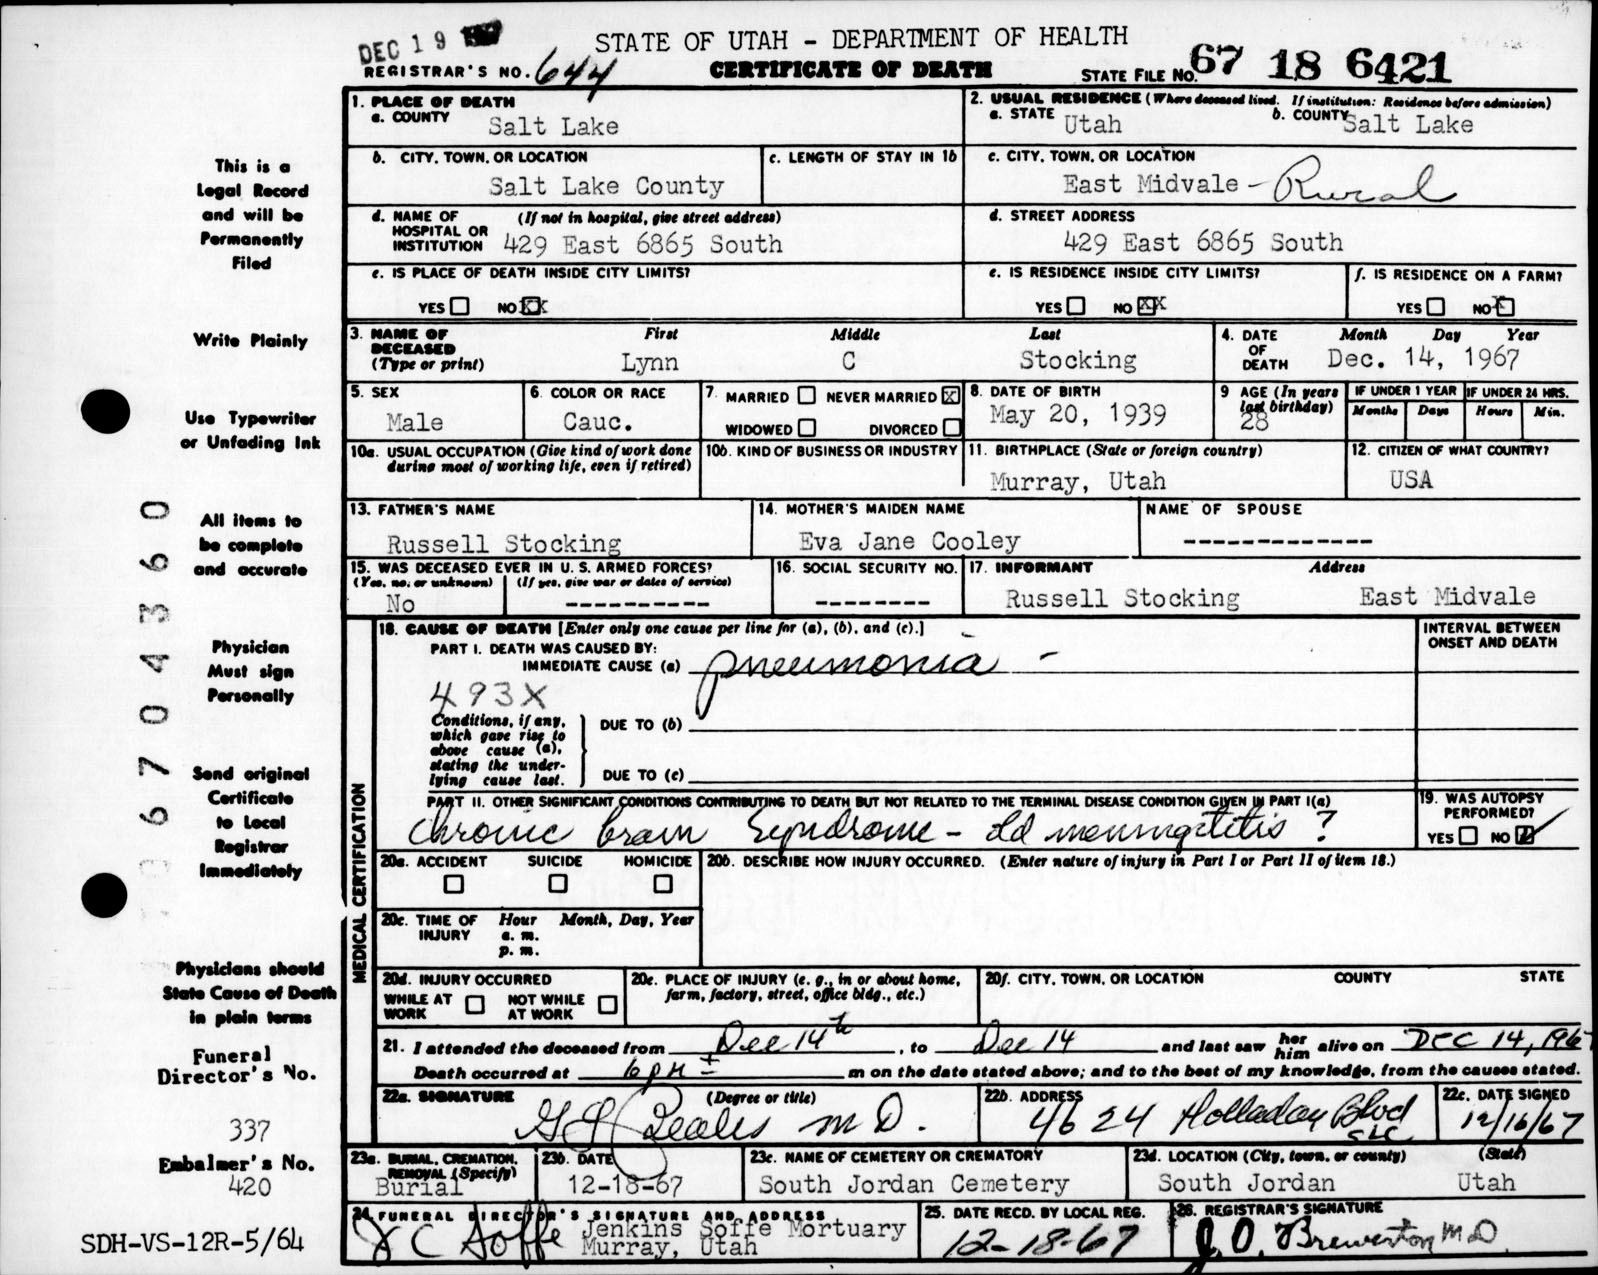 DEC 19
STATE OF UTAH - DEPARTMENT OF HEALTH
REGISTRAR'S NO. 644
CERTIFICATE OF DEATH
STATE FILE NO. 67 18 6421
This is a
Legal Record
and will be
Permanently
Filed
Write Plainly
Use Typewriter
or Unfading Ink
All items to
be complete
and accurate
Physician
Must sign
Personally
Send original
Certificate
to Local
Registrar
Immediately
Physicians should
State Cause of Death
in plain terms
Funeral
Director's No.
337
Embalmer's No.
420
SDH-VS-12R-5/64
6704360
1. PLACE OF DEATH
a. COUNTY Salt Lake
2. USUAL RESIDENCE (Where deceased lived. If institution: Residence before admission)
a. STATE Utah b. COUNTY Salt Lake
b. CITY, TOWN, OR LOCATION Salt Lake County
c. LENGTH OF STAY IN 1b
c. CITY, TOWN, OR LOCATION
East Midvale - Rural
d. NAME OF HOSPITAL OR INSTITUTION (If not in hospital, give street address)
429 East 6865 South
d. STREET ADDRESS
429 East 6865 South
e. IS PLACE OF DEATH INSIDE CITY LIMITS?
YES NO XX
e. IS RESIDENCE INSIDE CITY LIMITS?
YES NO XX
f. IS RESIDENCE ON A FARM?
YES NO X
3. NAME OF DECEASED (Type or print)
First Middle Last
Lynn C Stocking
4. DATE OF DEATH Month Day Year
Dec. 14, 1967
5. SEX
Male
6. COLOR OR RACE
Cauc.
7. MARRIED NEVER MARRIED X
WIDOWED DIVORCED
8. DATE OF BIRTH
May 20, 1939
9 AGE (In years last birthday)
28
IF UNDER 1 YEAR
Months Days
IF UNDER 24 HRS.
Hours Min.
10a. USUAL OCCUPATION (Give kind of work done during most of working life, even if retired)
10b. KIND OF BUSINESS OR INDUSTRY
11. BIRTHPLACE (State or foreign country)
Murray, Utah
12. CITIZEN OF WHAT COUNTRY?
USA
13. FATHER'S NAME
Russell Stocking
14. MOTHER'S MAIDEN NAME
Eva Jane Cooley
NAME OF SPOUSE
-------------
15. WAS DECEASED EVER IN U. S. ARMED FORCES?
(Yes, no, or unknown) (If yes, give war or dates of service)
No ----------
16. SOCIAL SECURITY NO.
--------
17. INFORMANT Address
Russell Stocking East Midvale
MEDICAL CERTIFICATION
18. CAUSE OF DEATH [Enter only one cause per line for (a), (b), and (c).]
INTERVAL BETWEEN ONSET AND DEATH
PART I. DEATH WAS CAUSED BY:
IMMEDIATE CAUSE (a) pneumonia -
493X
Conditions, if any, which gave rise to above cause (a), stating the underlying cause last.
DUE TO (b)
DUE TO (c)
PART II. OTHER SIGNIFICANT CONDITIONS CONTRIBUTING TO DEATH BUT NOT RELATED TO THE TERMINAL DISEASE CONDITION GIVEN IN PART I(a)
Chronic brain Syndrome - old meningitis ?
19. WAS AUTOPSY PERFORMED?
YES NO
20a. ACCIDENT SUICIDE HOMICIDE
20b. DESCRIBE HOW INJURY OCCURRED. (Enter nature of injury in Part I or Part II of item 18.)
20c. TIME OF INJURY Hour Month, Day, Year
a. m.
p. m.
20d. INJURY OCCURRED
WHILE AT WORK NOT WHILE AT WORK
20e. PLACE OF INJURY (e. g., in or about home, farm, factory, street, office bldg., etc.)
20f. CITY, TOWN, OR LOCATION COUNTY STATE
21. I attended the deceased from Dec 14th, to Dec 14 and last saw her him alive on DEC 14, 1967
Death occurred at 6 PM ± m on the date stated above; and to the best of my knowledge, from the causes stated.
22a. SIGNATURE (Degree or title)
G L Beales M D.
22b. ADDRESS
4624 Holladay Blvd
SLC
22c. DATE SIGNED
12/16/67
23a. BURIAL, CREMATION, REMOVAL (Specify)
Burial
23b. DATE
12-18-67
23c. NAME OF CEMETERY OR CREMATORY
South Jordan Cemetery
23d. LOCATION (City, town, or county) (State)
South Jordan Utah
24. FUNERAL DIRECTOR'S SIGNATURE AND ADDRESS
C Soffe Jenkins Soffe Mortuary
Murray, Utah
25. DATE RECD. BY LOCAL REG.
12-18-67
26. REGISTRAR'S SIGNATURE
J. O. Brewerton M D.